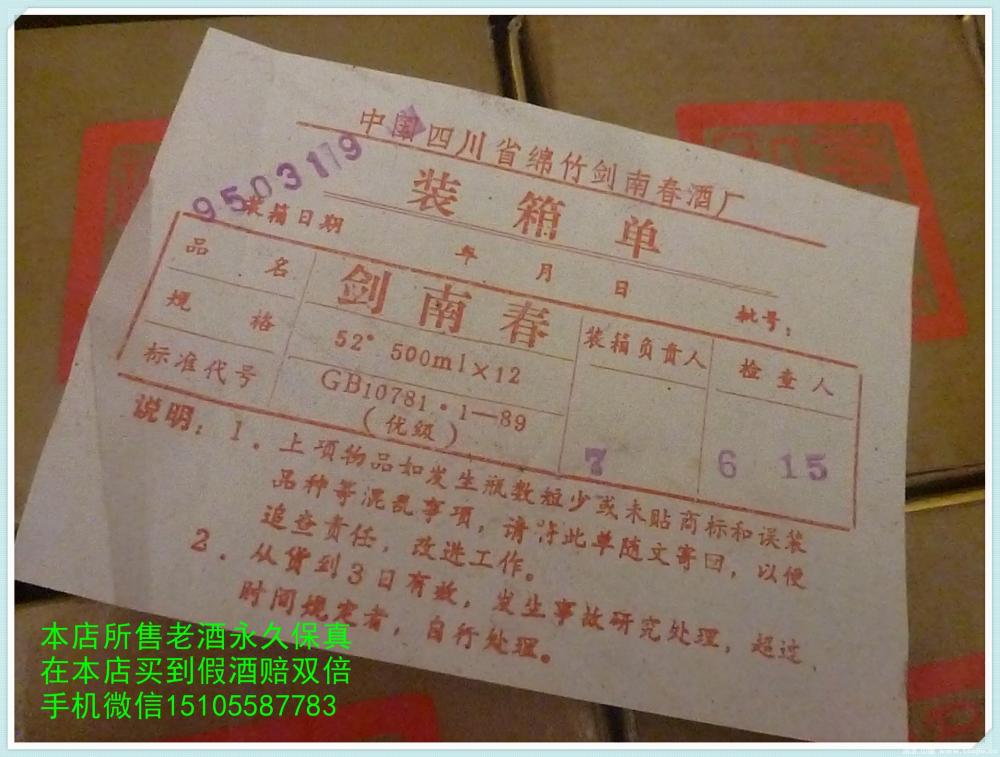 中国四川省绵竹剑南春酒厂
9503179
装箱单
装箱日期 年 月 日 批号：
品名 剑南春 装箱负责人 检查人
规格 52° 500ml×12
标准代号 GB10781·1—89
（优级） 7 6 15
说明：1．上项物品如发生瓶数短少或未贴商标和误装
品种等混乱事项，请将此单随文寄回，以便
追查责任，改进工作。
2．从货到3日有效，发生事故研究处理，超过
时间规定者，自行处理。
本店所售老酒永久保真
在本店买到假酒赔双倍
手机微信15105587783